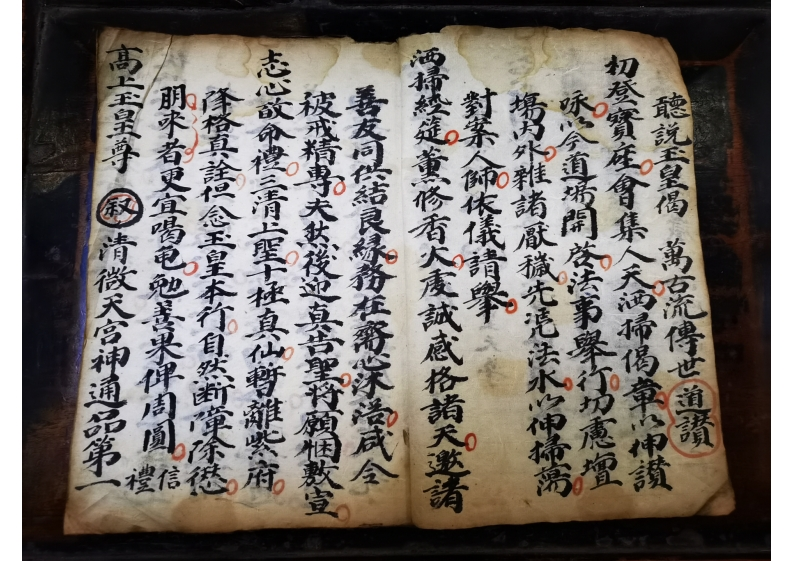 聽說玉皇偈　萬古流傳世 道讚
初登寶座會集人天洒掃偈章以伸讚
咏以今道場開啓法事舉行切慮壇
場内外雜諸厭穢先凴法水以伸掃蕩
對案人師依儀請舉
洒掃經筵薰修香火虔誠感格諸天邀請
善友同供結良緣務在齋心沐浴咸令
被戒精專夫然後迎真告聖將願悃敷宣
志心皈命禮三清上聖十極真仙暫離紫府
降格真詮但念玉皇本行自然断障除愆
朋來者更宜竭電勉善果俾周圓 信禮
高上玉皇尊 叙 清微天宮神通品第一